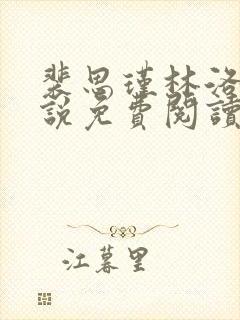 裴思瑾林洛
說免費閱讀
江暮里